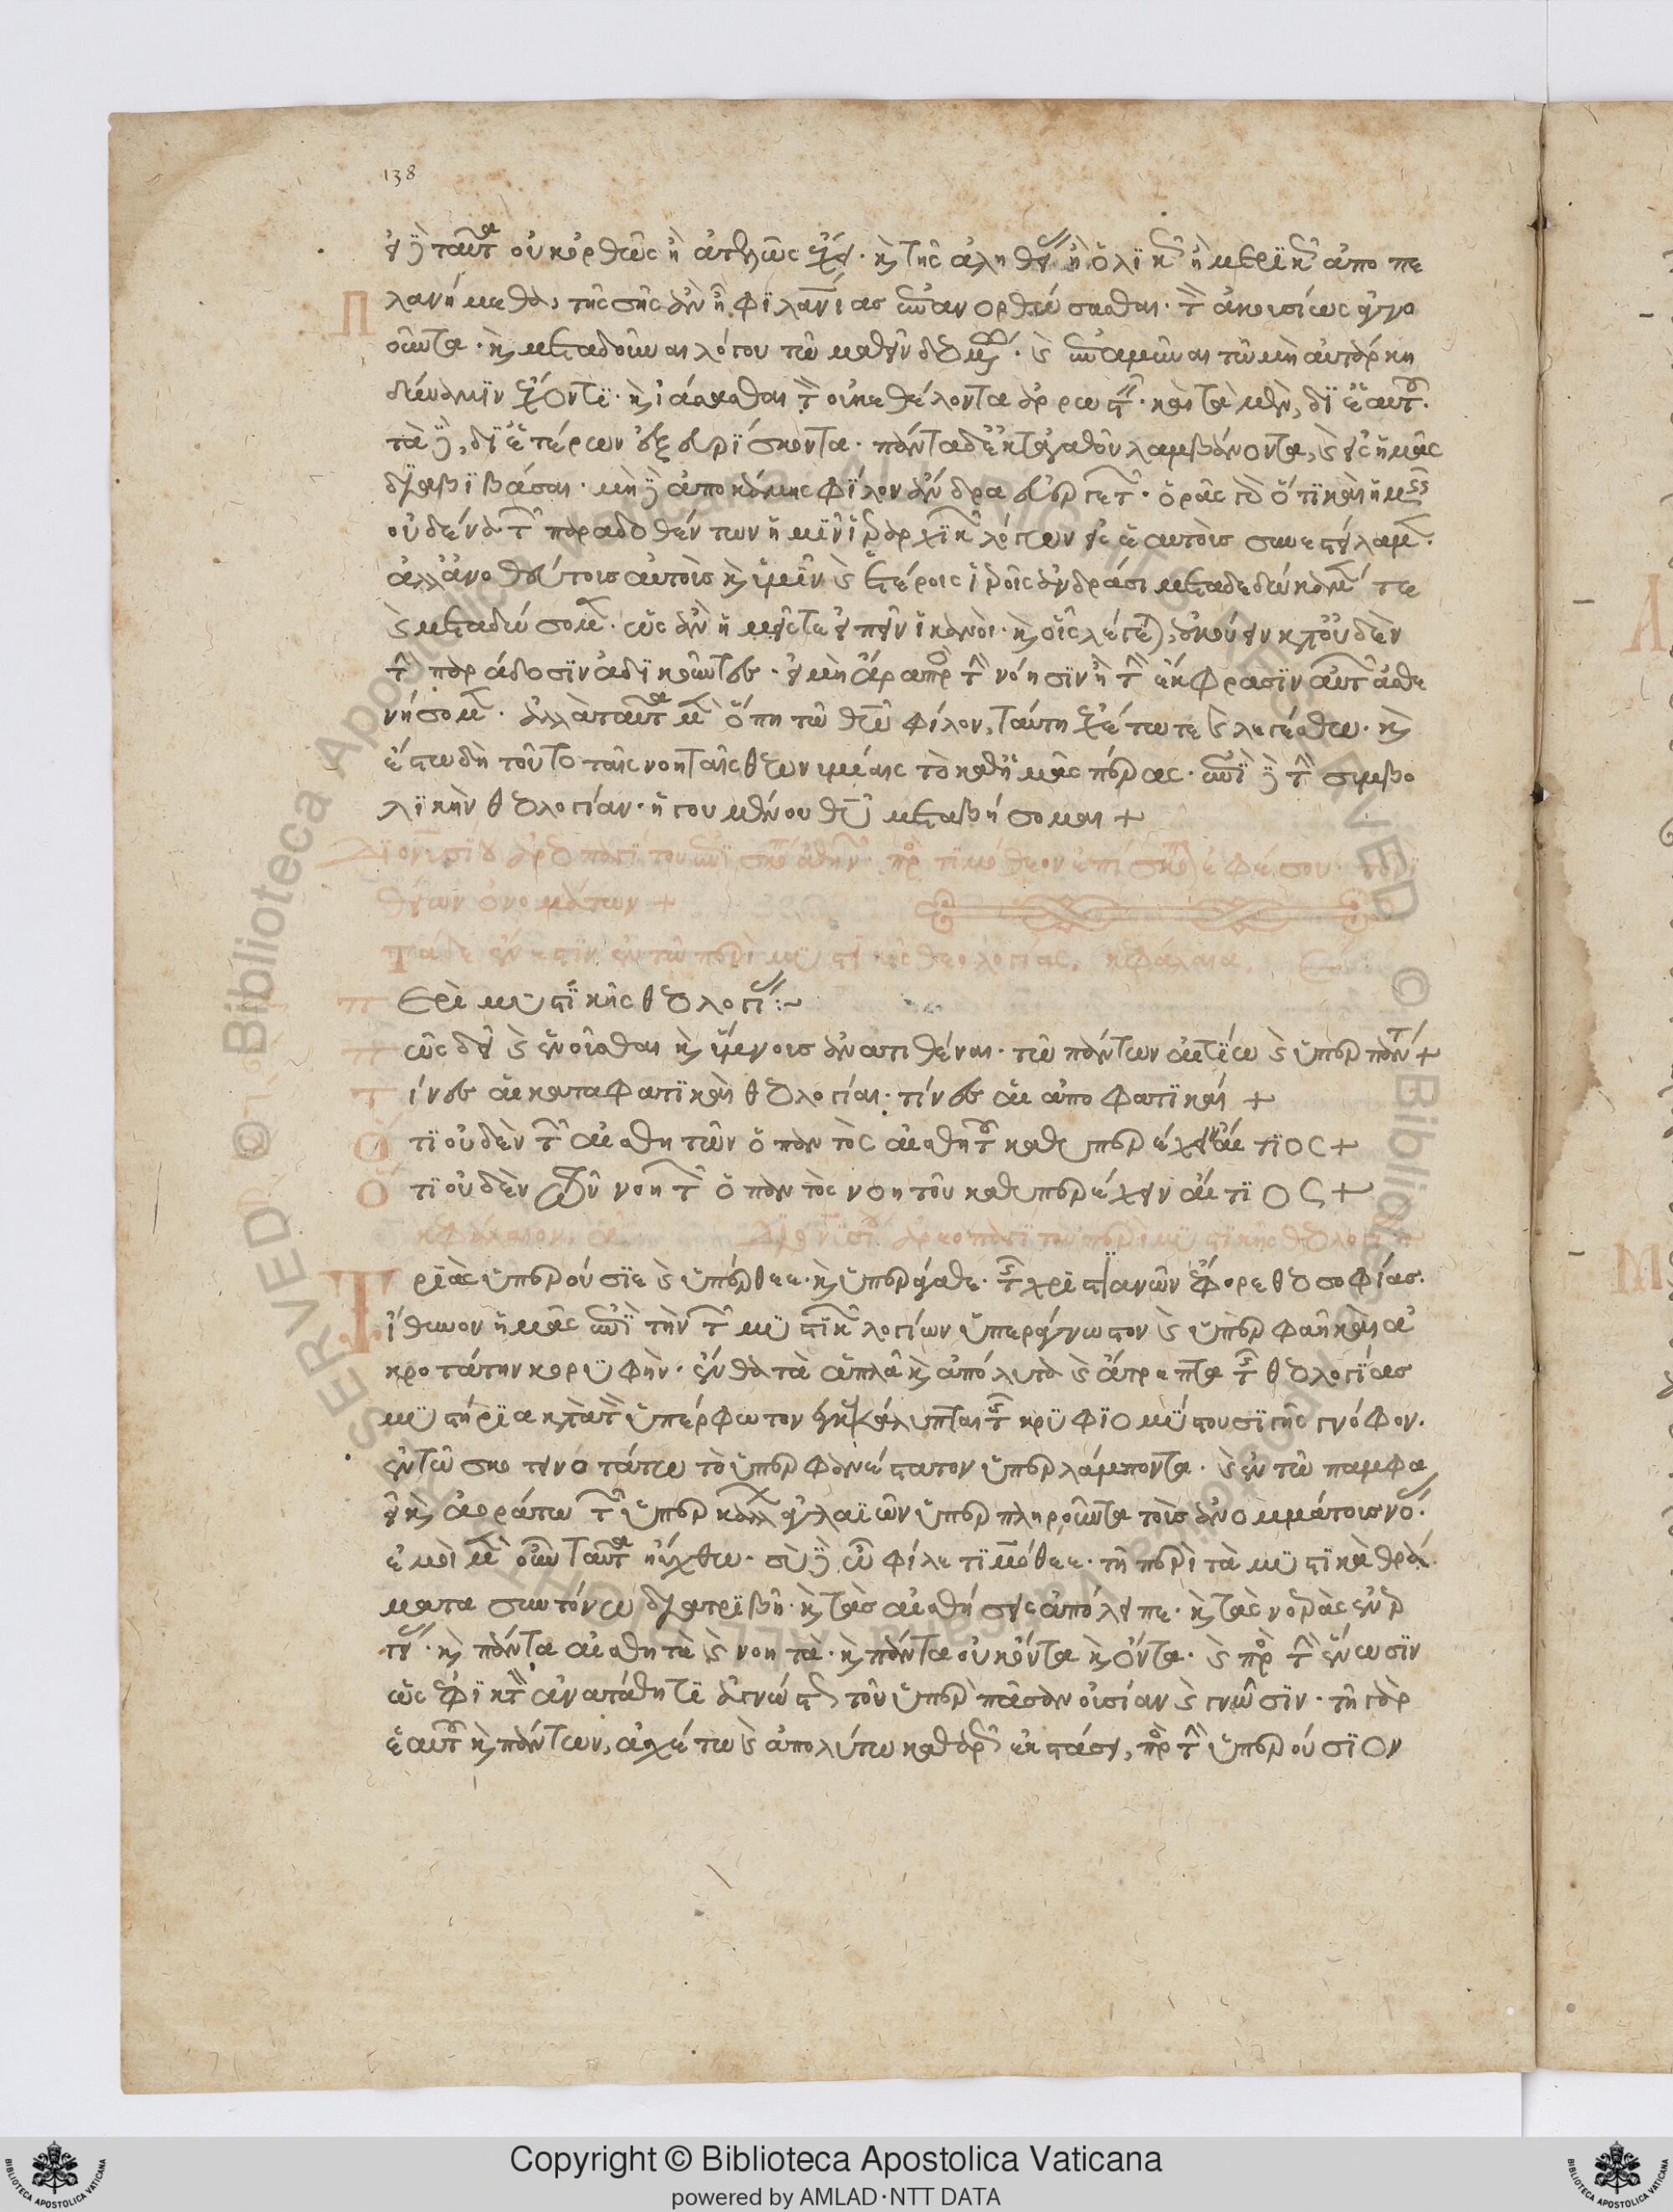 138
εἰ δὲ ταῦτα οὐκ ὀρθῶς ἢ ἀτελῶς ἔχει· καὶ τῆς ἀληθείας ἢ ὁλικῶς ἢ μερικῶς ἀποπε
λανήμεθα, τῆς σῆς ἂν εἴη φιλανίας ἐπανορθώσασθαι· τὸν ἀκουσίως ἀγνο
οῦντα· καὶ μεταδοῦναι λόγου τῷ μαθεῖν δεομένῳ· καὶ ἐπαμῦναι τῷ μὴ αὐτάρκη
δύναμιν ἔχοντι· καὶ ἰάσασθαι τὸν οὐκ ἐθέλοντα ἀρρωστεῖν· καὶ τὰ μὲν, δι ἑαυτοῦ·
τὰ δὲ, δι ἑτέρων ἐξευρίσκοντα· πάντα δὲ ἐκ τἀγαθοῦ λαμβάνοντα, καὶ εἰς ἡμᾶς
διαβιβάσαι· μὴ δὲ ἀποκάμῃς φίλον ἄνδρα εὐεργετῶν· ὁρᾷς γὰρ ὅτι καὶ ἡμεῖς
οὐδένα τῶν παραδοθέντων ἡμῖν ἱεραρχικῶν λόγων εἰς ἑαυτοὺς συνεστείλαμεν·
ἀλλ ἀνοθεύτους αὐτοὺς καὶ ὑμῖν καὶ ἑτέροις ἱεροῖς ἀνδράσι μεταδεδώκαμέν τε
καὶ μεταδώσομεν· ὡς ἂν ἡμεῖς τε εἰπεῖν ἱκανοὶ· καὶ οἷς λέγεται, ἀκούειν κατ οὐδὲν
τὴν παράδοσιν ἀδικοῦντες· εἰ μὴ ἄρα πρὸς τὴν νόησιν ἢ τὴν ἔκφρασιν αὐτῶν ἀσθε
νήσομεν· ἀλλὰ ταῦτα μὲν ὅπῃ τῷ θῶ φίλον, ταύτῃ ἐχέτω τε καὶ λεγέσθω· καὶ
ἔστω δὴ τοῦτο ταῖς νοηταῖς θεωνυμίαις τὸ καθ ἡμᾶς πέρας· ἐπὶ δὲ τὴν συμβο
λικὴν θεολογίαν· ἡγουμένου θῦ μεταβήσομαι +
Διονυσίου ἀρεοπαγίτου ἐπισκόπου ἀθηνῶν· πρὸς τιμόθεον ἐπίσκοπον ἐφέσου· περὶ
θείων ὀνομάτων +
Τάδε ἔνεστιν ἐν τῷ περὶ μυστικῆς θεολογίας, κεφάλαια.
Περὶ μυστικῆς θεολογίας:~
Πῶς δεῖ καὶ ἑνοῦσθαι καὶ ὕμνους ἀνατιθέναι· τῷ πάντων αἰτίῳ καὶ ὑπὲρ πάντα +
Τίνες αἱ καταφατικαὶ θεολογίαι· τίνες αἱ ἀποφατικαί +
Ὅτι οὐδὲν τῶν αἰσθητῶν ὁ παντὸς αἰσθητοῦ καθ ὑπεροχὴν αἴτιος +
Ὅτι οὐδὲν τῶν νοητῶν ὁ παντὸς νοητοῦ καθ ὑπεροχὴν αἴτιος +
κεφάλαιον α Διονυσίου ἀρεοπαγίτου περὶ μυστικῆς θεολογίας
Τριὰς ὑπερούσιε καὶ ὑπέρθεε· καὶ ὑπεράγαθε· τῆς χριστιανῶν ἔφορε θεοσοφίας·
ἴθυνον ἡμᾶς ἐπὶ τὴν τῶν μυστικῶν λογίων ὑπεράγνωστον καὶ ὑπερφαῆ καὶ ἀ
κροτάτην κορυφὴν· ἔνθα τὰ ἁπλᾶ καὶ ἀπόλυτα καὶ ἄτρεπτα τῆς θεολογίας
μυστήρια κατὰ τὸν ὑπέρφωτον ἐγκεκάλυπται τῆς κρυφιομύστου σιγῆς γνόφον·
ἐν τῷ σκοτεινοτάτῳ τὸ ὑπερφανέστατον ὑπερλάμποντα· καὶ ἐν τῷ παμφα
εῖ καὶ ἀοράτῳ τῶν ὑπερκάλων ἀγλαϊῶν ὑπερπληροῦντα τοὺς ἀνομμάτους νόας·
ἐμοὶ μὲν οὖν ταῦτα ηὔχθω· σὺ δὲ ὦ φίλε τιμόθεε· τῇ περὶ τὰ μυστικὰ θεά
ματα συντόνῳ διατριβῇ· καὶ τὰς αἰσθήσεις ἀπόλειπε· καὶ τὰς νοερὰς ἐνερ
γείας· καὶ πάντα αἰσθητὰ καὶ νοητὰ· καὶ πάντα οὐκ ὄντα καὶ ὄντα· καὶ πρὸς τὴν ἕνωσιν
ὡς ἐφικτὸν ἀνατάθητι ἀγνώστως τοῦ ὑπὲρ πᾶσαν οὐσίαν καὶ γνῶσιν· τῇ γὰρ
ἑαυτοῦ καὶ πάντων, ἀσχέτῳ καὶ ἀπολύτῳ καθαρῶς ἐκστάσει, πρὸς τὴν ὑπερούσιον
Copyright © Biblioteca Apostolica Vaticana
powered by AMLAD·NTT DATA